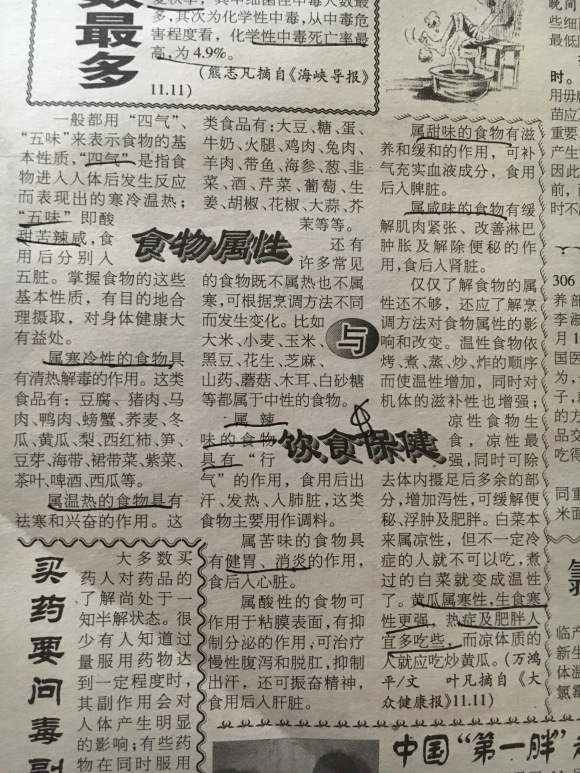 最多
多,其次为化学性中毒,从中毒危
害程度看,化学性中毒死亡率最
高,为4.9%。
(熊志凡摘自《海峡导报》
11.11)
食物属性
与
饮食保健
一般都用“四气”、
“五味”来表示食物的基
本性质,“四气”是指食
物进入人体后发生反应
而表现出的寒冷温热;
“五味”即酸
甜苦辣咸,食
用后分别入
五脏。掌握食物的这些
基本性质,有目的地合
理摄取,对身体健康大
有益处。
属寒冷性的食物具
有清热解毒的作用。这类
食品有:豆腐、猪肉、马
肉、鸭肉、螃蟹、荞麦、冬
瓜、黄瓜、梨、西红柿、笋、
豆芽、海带、裙带菜、紫菜、
茶叶、啤酒、西瓜等。
属温热的食物具有
祛寒和兴奋的作用。这
类食品有:大豆、糖、蛋、
牛奶、火腿、鸡肉、兔肉、
羊肉、带鱼、海参、葱、韭
菜、酒、芹菜、葡萄、生
姜、胡椒、花椒、大蒜、芥
茉等等。
还有
许多常见
的食物既不属热也不属
寒,可根据烹调方法不同
而发生变化。比如
大米、小麦、玉米、
黑豆、花生、芝麻、
山药、蘑菇、木耳、白砂糖
等都属于中性的食物。
属辣
味的食物
具有“行
气”的作用,食用后出
汗、发热、入肺脏,这类
食物主要用作调料。
属苦味的食物具
有健胃、消炎的作用,
食后入心脏。
属酸性的食物可
作用于粘膜表面,有抑
制分泌的作用,可治疗
慢性腹泻和脱肛,抑制
出汗,还可振奋精神,
食用后入肝脏。
属甜味的食物有滋
养和缓和的作用,可补
气充实血液成分,食用
后入脾脏。
属咸味的食物有缓
解肌肉紧张、改善淋巴
肿胀及解除便秘的作
用,食后入肾脏。
仅仅了解食物的属
性还不够,还应了解烹
调方法对食物属性的影
响和改变。温性食物依
烤、煮、蒸、炒、炸的顺序
而使温性增加,同时对
机体的滋补性也增强;
凉性食物生
食,凉性最
强,同时可除
去体内摄足后多余的部
分,增加泻性,可缓解便
秘、浮肿及肥胖。白菜本
来属凉性,但不一定冷
症的人就不可以吃,煮
过的白菜就变成温性
了。黄瓜属寒性,生食寒
性更强,热症及肥胖人
宜多吃些,而凉体质的
人就应吃炒黄瓜。(万鸿
平/文 叶凡摘自《大
众健康报》11.11)
买药要问毒副
大多数买
药人对药品的
了解尚处于一
知半解状态。很
少有人知道过
量服用药物达
到一定程度时,
其副作用会对
人体产生明显
的影响;有些药
物在同时服用
中国“第一胖”